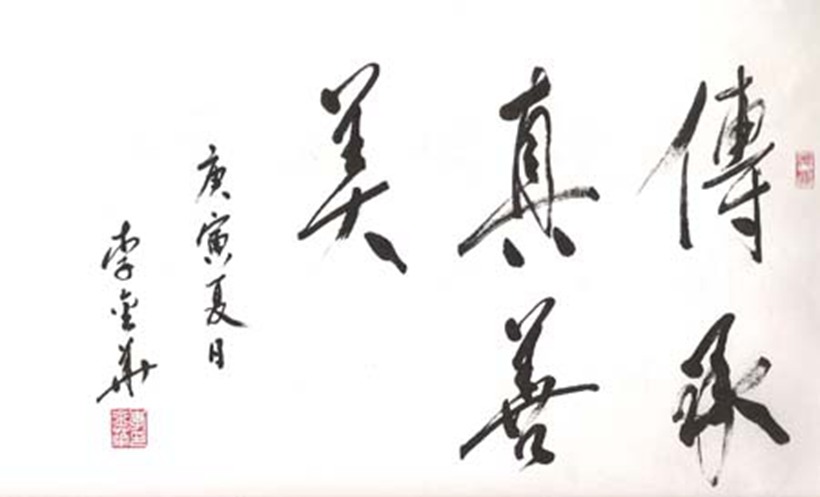 傳承
真善
美
庚寅夏日
李金華